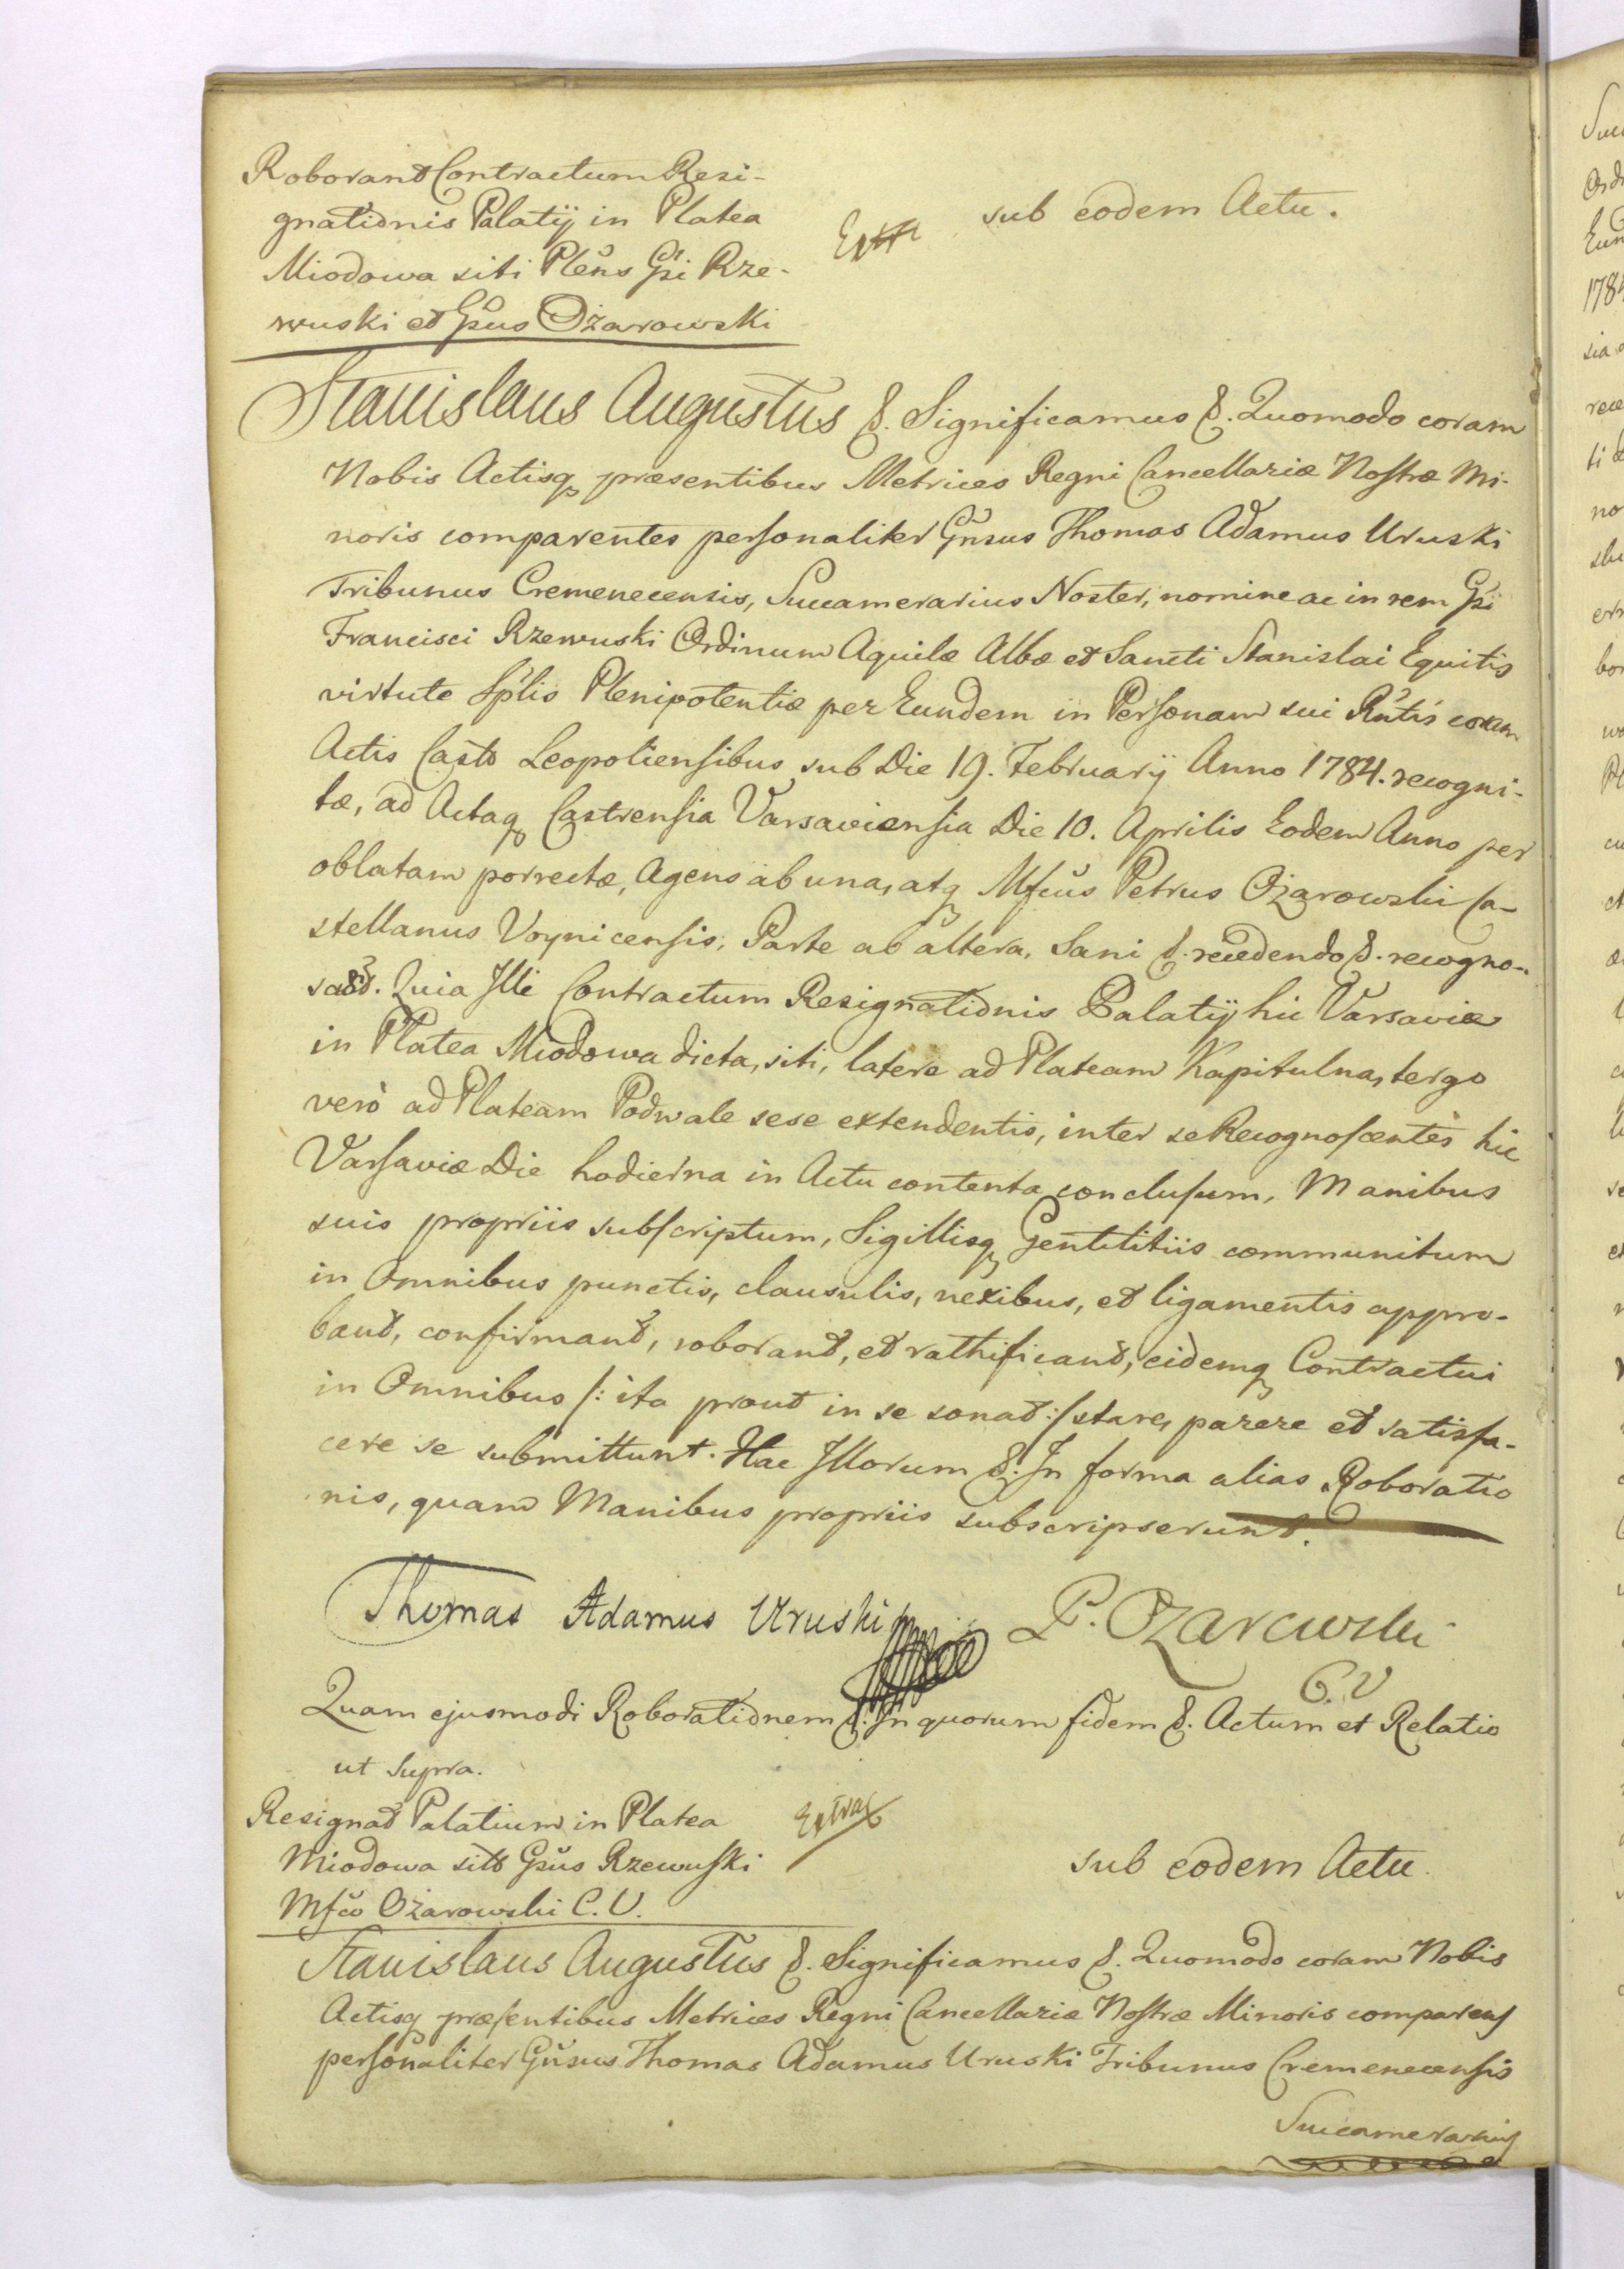 Roborant Contractum Resi-
gnationis Palatij in Platea
Miodowa siti Plens Gsi Rze-
wuski et Gsus Ożarowski
Extr
sub eodem Actu.
Stanislaus Augustus &. Significamus &. Quomodo coram
Nobis Actisq præsentibus Metrices Regni Cancellariæ Nostræ Mi-
noris comparentes personaliter Gnsus Thomas Adamus Uruski
Tribunus Cremenecensis, Succamerarius Noster, nomine ac in rem Gsi
Francisci Rzewuski Ordinum Aquilæ Albæ et Sancti Stanislai Equitis
virtute Splis Plenipotentiæ per Eundem in Personam sui Rntis coram
Actis Castr Leopoliensibus sub Die 19. February Anno 1784. recogni-
tæ, ad Actaq Castrensia Varsaviensia Die 10. Aprilis Eodem Anno per
oblatam porrectæ, Agens ab una, atq Mfcus Petrus Ożarowski Ca-
stellanus Voynicensis, Parte ab altera, Sani &. recedendo &. recogno-
. Quia Illi Contractum Resignationis Palatij hic Varsaviæ
in Platea Miodowa dicta, siti, latere ad Plateam Kapitulna, tergo
verò ad Plateam Podwale sese extendentis, inter se Recognoscentes hic
Varsaviæ Die hodierna in Actu contenta conclusum, Manibus
suis propriis subscriptum, Sigillisq Gentilitiis communitum
in Omnibus punctis, clausulis, nexibus, et ligamentis appro-
bant, confirmant, roborant, et rathificant, eidemq Contractui
in Omnibus /: ita prout in se sonat :/ stare, parere et satisfa-
cere se submittunt. Hac Illorum &. In forma alias Roboratio
nis, quam Manibus propriis subscripserunt.
Thomas Adamus Uruski
P. Ożarowski
C. V
Quam ejusmodi Roborationem &. In quorum fidem &. Actum et Relatio
ut supra.
Resignat Palatium in Platea
Miodowa sit Gsus Rzewuski
Mfco Ożarowski C. V.
Extrax
sub eodem Actu.
Stanislaus Augustus &. Significamus &. Quomodo coram Nobis
Actisq præsentibus Metrices Regni Cancellariæ Nostræ Minoris comparens
personaliter Gnsus Thomas Adamus Uruski Tribunus Cremenecensis
Succamerarius